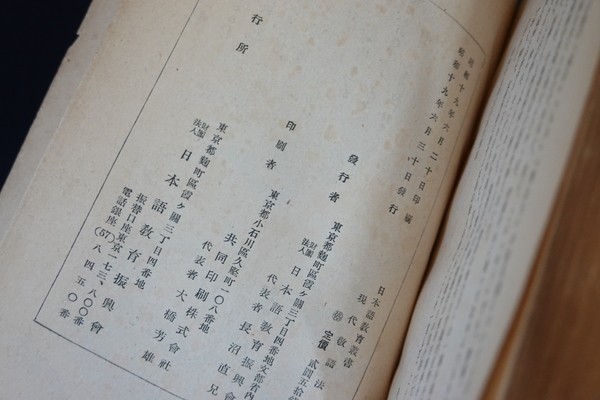 昭和十九年六月二十日印刷
昭和十九年六月三十日發行
日本語教育叢書
現代敬語法
定價 貳圓五拾
發行者 東京都麴町區霞ケ關三丁目四番地文部省内
財團法人 日本語教育振興會
代表者 長沼直兄
印刷者 東京都小石川區久堅町一〇八番地
共同印刷株式會社
代表者 大橋芳雄
行所
東京都麴町區霞ケ關三丁目四番地
財團法人 日本語教育振興會
振替口座東京一七三、八〇〇番
電話銀座(57)八四五〇番